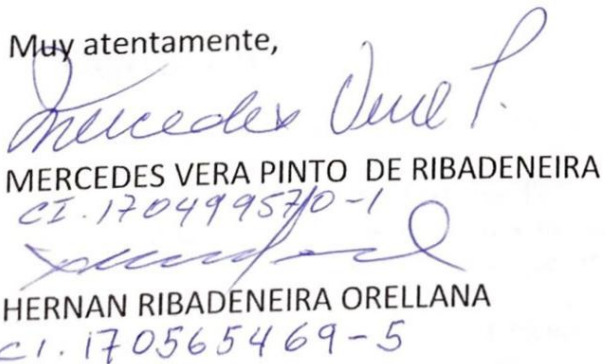 Muy atentamente,
Mercedes Vera P.
MERCEDES VERA PINTO DE RIBADENEIRA
CI. 170499570-1
HERNAN RIBADENEIRA ORELLANA
CI. 170565469-5